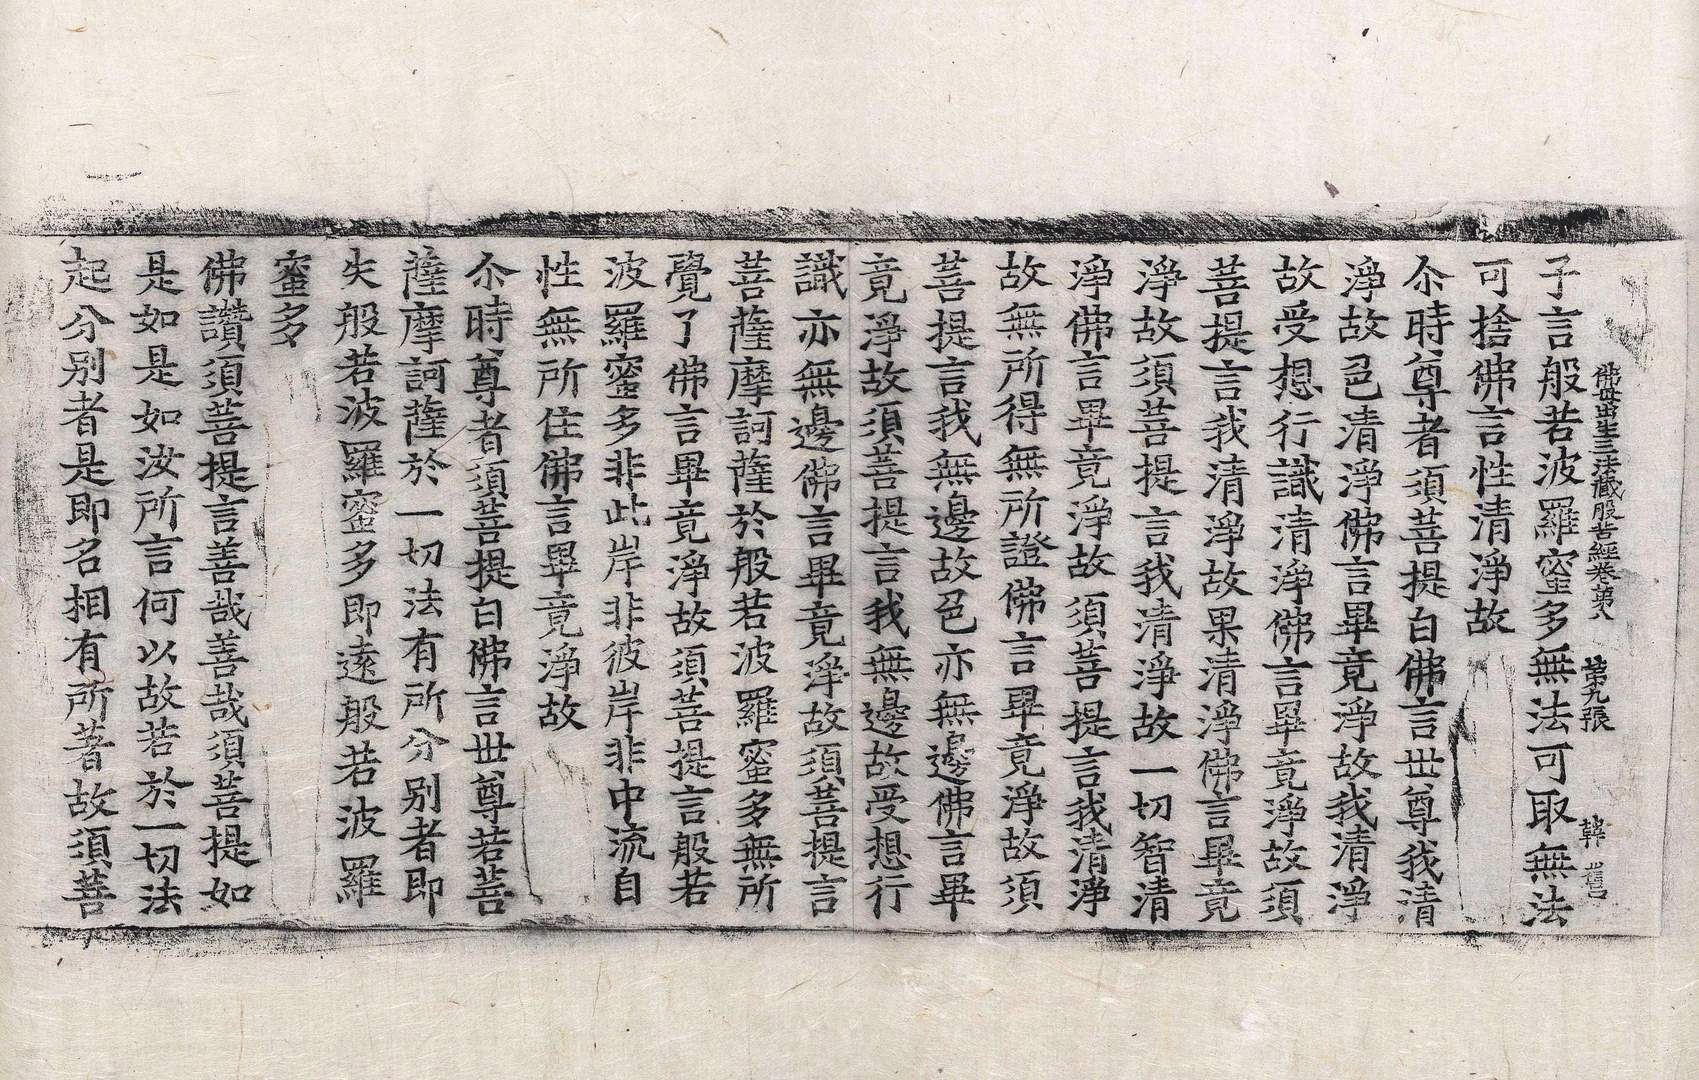 佛母出生三法藏般若經卷第八 第九張 韓
子言般若波羅蜜多無法可取無法
可捨佛言性清淨故
尒時尊者須菩提白佛言世尊我清
淨故色清淨佛言畢竟淨故我清淨
故受想行識清淨佛言畢竟淨故須
菩提言我清淨故果清淨佛言畢竟
淨故須菩提言我清淨故一切智清
淨佛言畢竟淨故須菩提言我清淨
故無所得無所證佛言畢竟淨故須
菩提言我無邊故色亦無邊佛言畢
竟淨故須菩提言我無邊故受想行
識亦無邊佛言畢竟淨故須菩提言
菩薩摩訶薩於般若波羅蜜多無所
覺了佛言畢竟淨故須菩提言般若
波羅蜜多非此岸非彼岸非中流自
性無所住佛言畢竟淨故
尒時尊者須菩提白佛言世尊若菩
薩摩訶薩於一切法有所分別者即
失般若波羅蜜多即遠般若波羅
蜜多
佛讚須菩提言善哉善哉須菩提如
是如是如汝所言何以故若於一切法
起分別者是即名相有所著故須菩